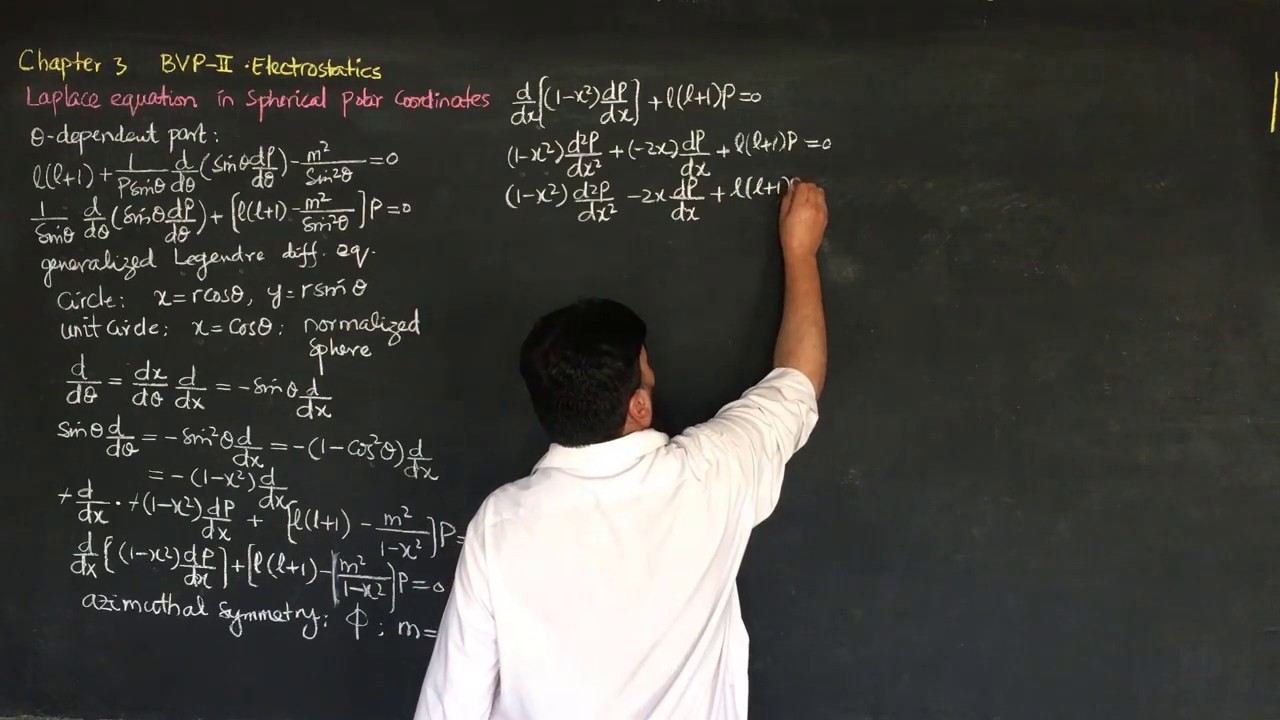 Chapter 3 BVP-II · Electrostatics
Laplace equation in Spherical Polar Coordinates
θ-dependent part:
l(l+1) + 1/(P sinθ) d/dθ (sinθ dP/dθ) - m²/sin²θ = 0
1/sinθ d/dθ (sinθ dP/dθ) + [l(l+1) - m²/sin²θ] P = 0
generalized Legendre diff. eq.
Circle: x = r cosθ, y = r sinθ
unit circle: x = cosθ: normalized
sphere
d/dθ = dx/dθ d/dx = -sinθ d/dx
sinθ d/dθ = -sin²θ d/dx = -(1-cos²θ) d/dx
= -(1-x²) d/dx
+ d/dx · +(1-x²) dP/dx + [l(l+1) - m²/(1-x²)] P =
d/dx [(1-x²) dP/dx] + [l(l+1) - m²/(1-x²)] P = 0
azimuthal symmetry: ϕ; m =
d/dx [(1-x²) dP/dx] + l(l+1)P = 0
(1-x²) d²P/dx² + (-2x) dP/dx + l(l+1)P = 0
(1-x²) d²P/dx² - 2x dP/dx + l(l+1)